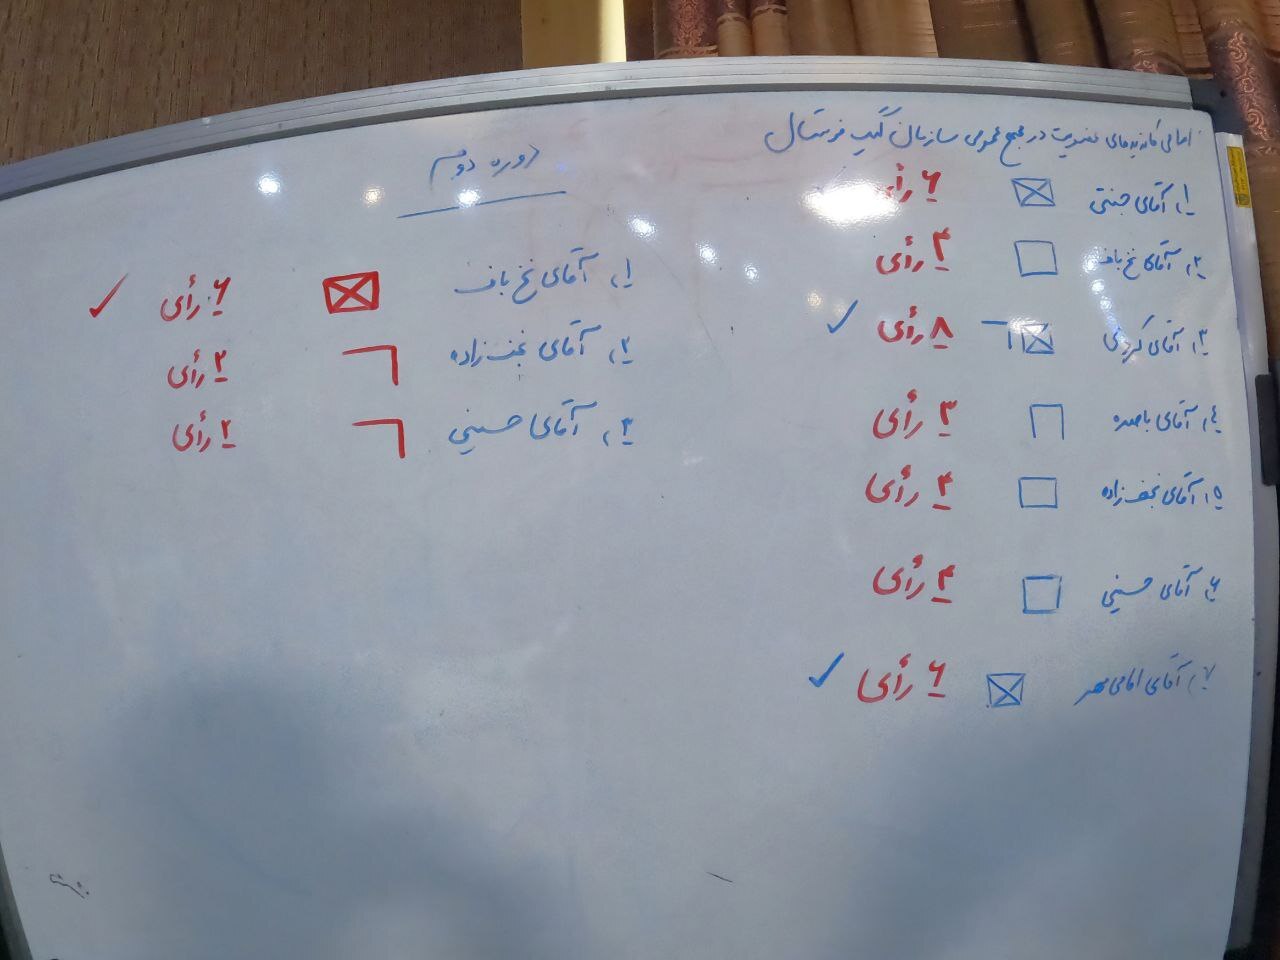 اسامی کاندیدهای عضویت در مجمع عمومی سازمان گیب فرستال
۱. آقای جنتی ۶ رأی
۲. آقای نخ باف ۴ رأی
۳. آقای کردی ۸ رأی ✓
۴. آقای باصره ۳ رأی
۵. آقای نجف زاده ۴ رأی
۶. آقای حسینی ۴ رأی
۷. آقای امامی مهر ۶ رأی ✓
دوره دوم
۱. آقای نخ باف ۶ رأی ✓
۲. آقای نجف زاده ۲ رأی
۳. آقای حسینی ۲ رأی